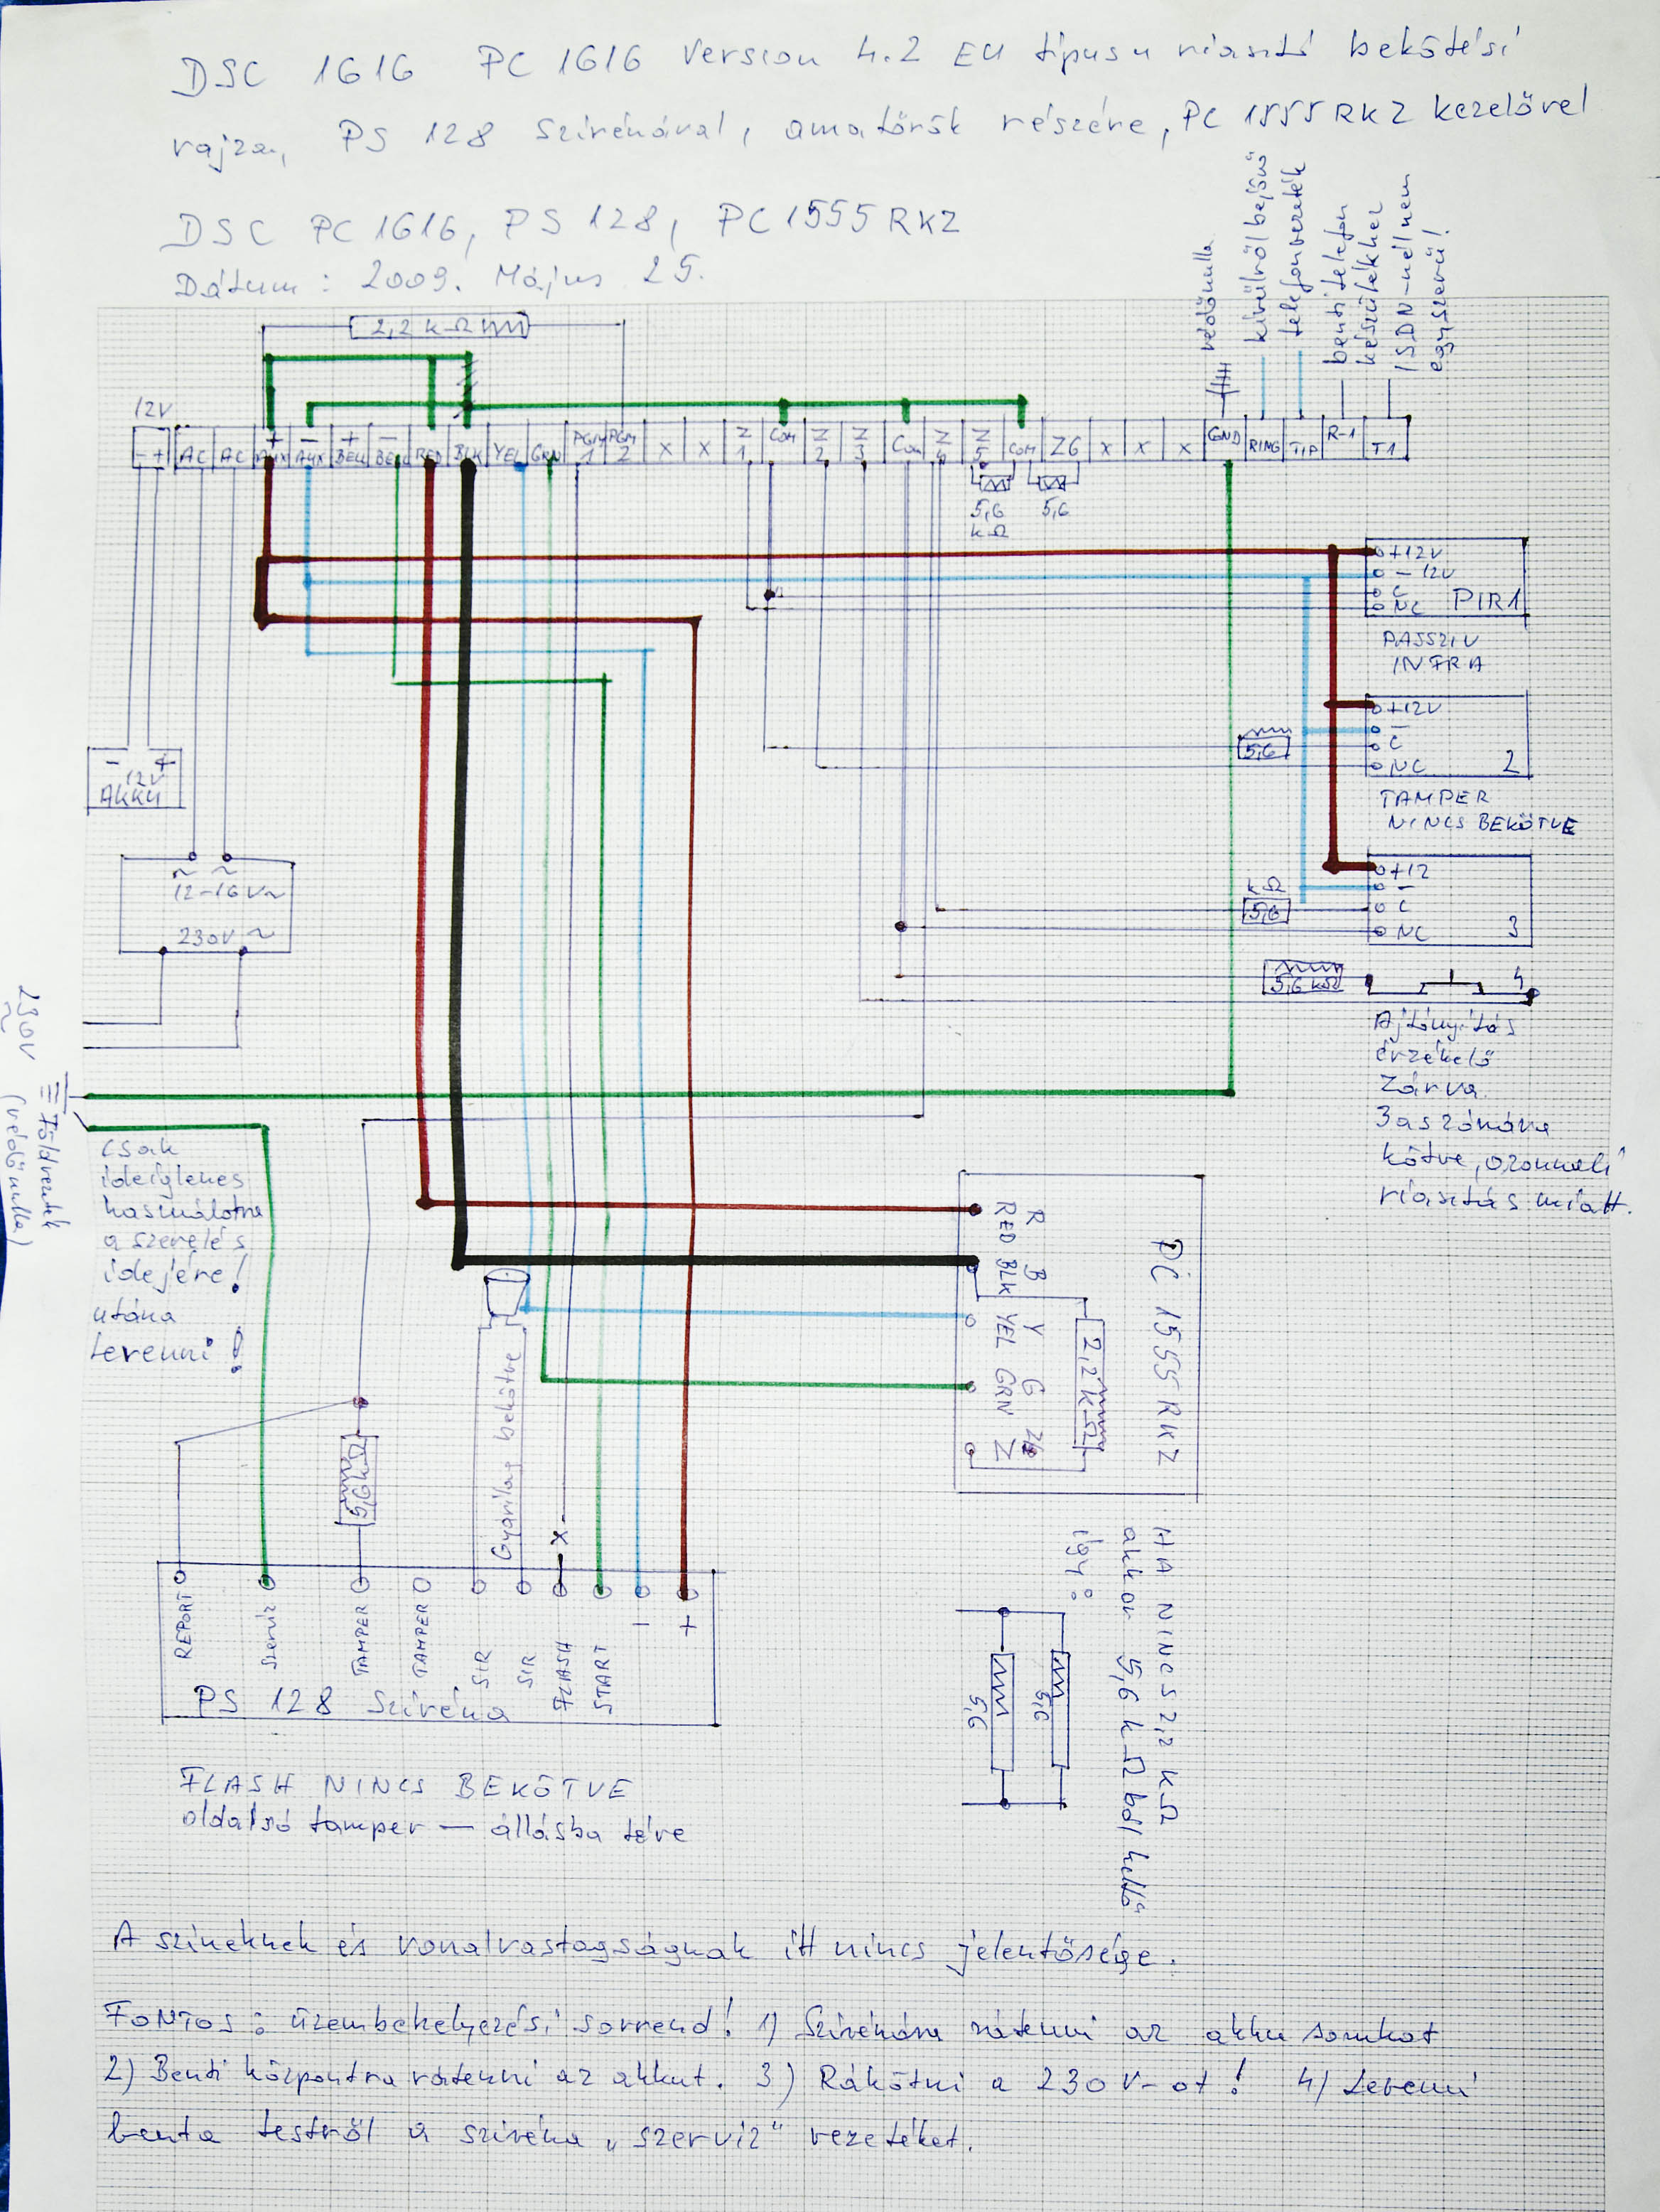 DSC 1616 PC 1616 Version 4.2 EU tipusu riasztó bekötési
rajza, PS 128 Szirénával, amatőrök részére, PC 1555 RKZ kezelővel
DSC PC 1616, PS 128, PC 1555 RKZ
Dátum: 2009. Május 25.
védőnulla
kívülről bejövő
telefonvezeték
benti telefon
készülékhez
ISDN-nél nem
egyszerű!
2,2 kΩ
12V
- + AC AC + AUX - AUX + BELL - BELL RED BLK YEL GRN PGM 1 PGM 2 X X Z 1 COM Z 2 Z 3 COM Z 4 Z 5 COM Z6 X X X GND RING TIP R-1 T1
5,6
kΩ
5,6
+12V
- 12V
C
NC PIR1
PASSZIV
INFRA
+12V
-
C
NC 2
5,6
TAMPER
NINCS BEKÖTVE
+12
-
C
NC 3
kΩ
5,6
5,6 kΩ
4
Ajtónyitás
érzékelő
Zárva.
3as zónára
kötve, azonnali
riasztás miatt.
- +
12V
AKKU
~ ~
12-16 V~
230V ~
230V
~
Földvezeték
(védőnulla)
csak
ideiglenes
használatra
a szerelés
idejére!
utána
levenni!
R B Y G Z
RED BLK YEL GRN Z
2,2 kΩ
PC 1555 RKZ
Gyárilag bekötve
5,6 kΩ
X
REPORT
Szerviz
TAMPER
TAMPER
SIR
SIR
FLASH
START
-
+
PS 128 Sziréna
HA NINCS 2,2 kΩ
akkor 5,6 kΩ ból kettő
így:
5,6
5,6
FLASH NINCS BEKÖTVE
oldalsó tamper — állásba téve
A színeknek és vonalvastagságnak itt nincs jelentősége.
FONTOS: üzembehelyezési sorrend! 1) Szirénára rátenni az akku sarukat
2) Benti központra rátenni az akkut. 3) Rákötni a 230 V-ot! 4) Levenni
benta testről a sziréna „szerviz" vezetéket.